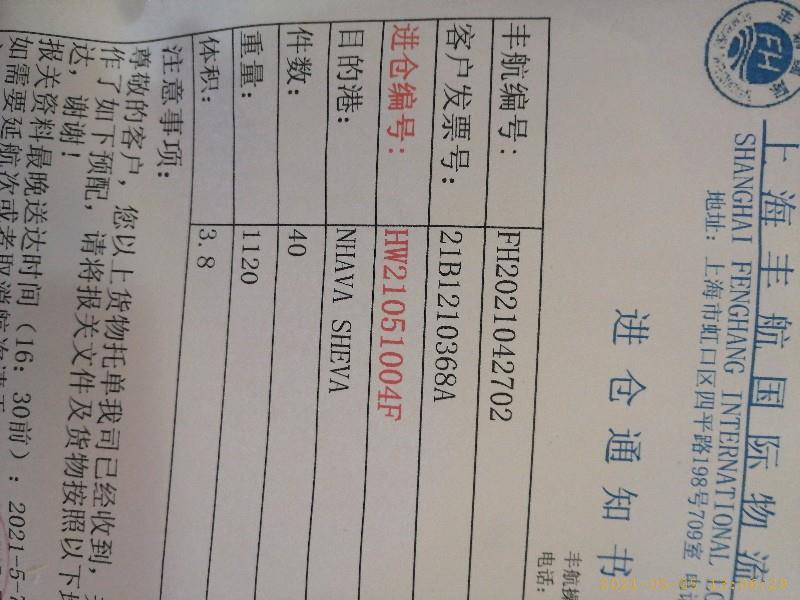 FH
上海丰航国际物流
SHANGHAI FENGHANG INTERNATIONAL
地址: 上海市虹口区四平路198号709室
进仓通知书
丰航操
电话:
丰航编号: FH2021042702
客户发票号: 21B1210368A
进仓编号: HW21051004F
目的港: NHAVA SHEVA
件数: 40
重量: 1120
体积: 3.8
注意事项:
尊敬的客户, 您以上货物托单我司已经收到,
作了如下预配, 请将报关文件及货物按照以下
达, 谢谢!
报关资料最晚送达时间 (16: 30前) : 2021-5-7
如需要延航次或者取消航次请于